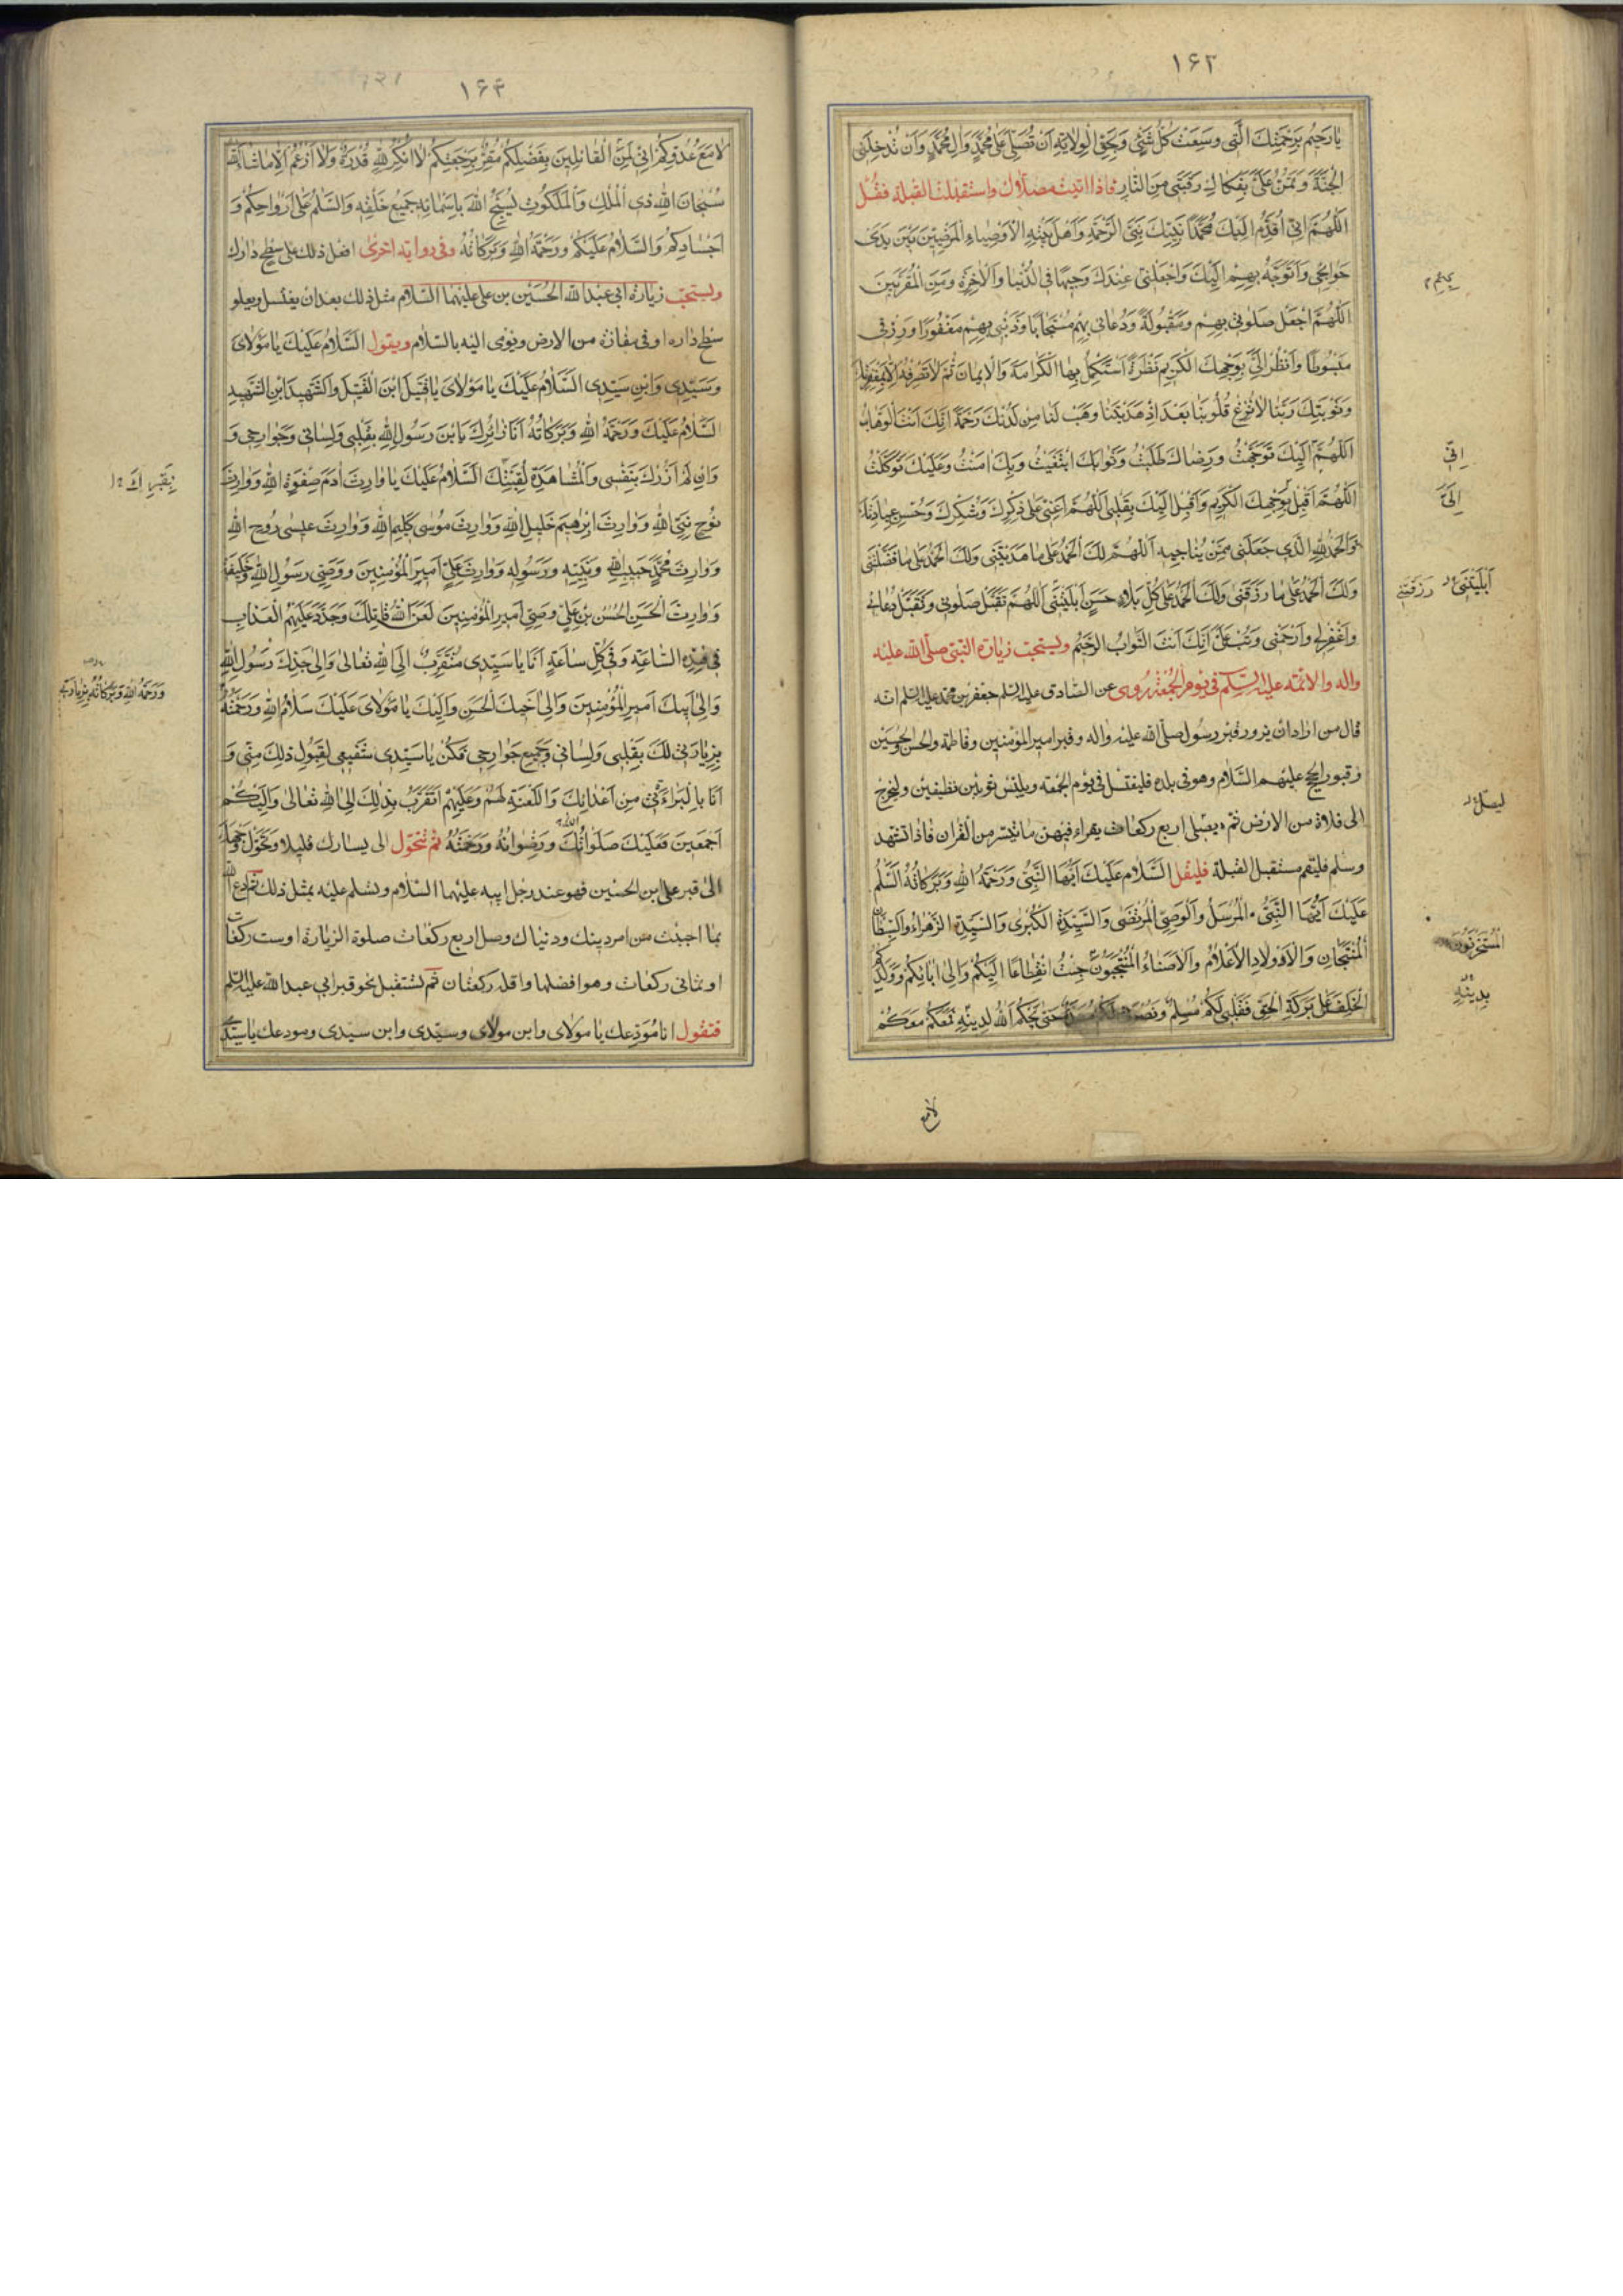 ١۶٢
يا رَحيمُ بِرَحْمَتِكَ الَّتى وَسِعَتْ كُلَّ شَىْءٍ وَبِحَقِّ الْوِلايَةِ اَنْ تُصَلِّىَ عَلى مُحَمَّدٍ وَالِ مُحَمَّدٍ وَاَنْ تُدْخِلَنِى
الْجَنَّةَ وَتَمُنَّ عَلَىَّ بِفَكاكِ رَقَبَتى مِنَ النّارِ فاذا اتيت مصلّاك واستقبلت القبلة فقُل
اَللّهُمَّ اِنّى اُقَدِّمُ اِلَيْكَ مُحَمَّدًا نَبِيَّكَ نَبِىَّ الرَّحْمَةِ وَاَهْلَ بَيْتِهِ الْاَوْصِياءِ الْمَرْضِيّينَ بَيْنَ يَدَىْ
حَوائِجى وَاَتَوَجَّهُ بِهِمْ اِلَيْكَ وَاجْعَلْنى عِنْدَكَ وَجيهًا فِى الدُّنْيا وَالْاخِرَةِ وَمِنَ الْمُقَرَّبينَ
اَللّهُمَّ اجْعَلْ صَلوتى بِهِمْ وَمَقْبُولَةً وَدُعائى بِهِمْ مُسْتَجابًا وَذَنْبى بِهِمْ مَغْفُورًا وَرِزْقى
مَبْسُوطًا وَانْظُرْ اِلَىَّ بِوَجْهِكَ الْكَريمِ نَظْرَةً اَسْتَكْمِلُ بِهَا الْكَرامَةَ وَالْايمانَ ثُمَّ لا تَصْرِفْهُ اِلّا بِمَغْفِرَتِكَ
وَتَوْبَتِكَ رَبَّنا لا تُزِغْ قُلُوبَنا بَعْدَ اِذْ هَدَيْتَنا وَهَبْ لَنا مِنْ لَدُنْكَ رَحْمَةً اِنَّكَ اَنْتَ الْوَهّابُ
اَللّهُمَّ اِلَيْكَ تَوَجَّهْتُ وَرِضاكَ طَلَبْتُ وَثَوابَكَ ابْتَغَيْتُ وَبِكَ امَنْتُ وَعَلَيْكَ تَوَكَّلْتُ
اَللّهُمَّ اَقْبِلْ بِوَجْهِكَ الْكَريمِ وَاَقْبِلْ اِلَيْكَ بِقَلْبى اَللّهُمَّ اَعِنّى عَلى ذِكْرِكَ وَشُكْرِكَ وَحُسْنِ عِبادَتِكَ
وَالْحَمْدُ لِلّهِ الَّذى جَعَلَنى مِمَّنْ يُناجيهِ اَللّهُمَّ لَكَ الْحَمْدُ عَلى ما هَدَيْتَنى وَلَكَ الْحَمْدُ عَلى ما فَضَّلْتَنى
وَلَكَ الْحَمْدُ عَلى ما رَزَقَنى وَلَكَ الْحَمْدُ عَلى كُلِّ بَلاءٍ حَسَنٍ اَبْلَيْتَنى اَللّهُمَّ تَقَبَّلْ صَلوتى وَتَقَبَّلْ دُعائى
وَاغْفِرْ لى وَارْحَمْنى وَتُبْ عَلَىَّ اِنَّكَ اَنْتَ التَّوّابُ الرَّحيمُ ويستحبّ زيارة النّبىّ صلّى الله عليه
واله والائمّه عليهم السّلم فى يوم الجُمْعَة رُوى عن الصّادق عليه السّلم جعفر بن محمد عليه السلم انّه
قال من اراد ان يزور قبر رسول صلّى الله عليه واله وقبر امير المؤمنين وفاطمة والحسن والحسين
وقبور الحجج عليهم السّلام وهو فى بلده فليغتسل فى يوم الجمعة ويلبس ثوبين نظيفين وليخرج
الى فلاة من الارض ثم يصلى اربع ركعات يقراء فيهنّ ما تيسّر من القران فاذا تشهد
وسلّم فليقم مستقبل القبلة فليقل اَلسَّلامُ عَلَيْكَ اَيُّهَا النَّبِىُّ وَرَحْمَةُ اللهِ وَبَرَكاتُهُ اَلسَّلمُ
عَلَيْكَ اَيُّهَا النَّبِىُّ الْمُرْسَلُ وَالْوَصِىُّ الْمُرْتَضى وَالسَّيِّدَةُ الْكُبْرى وَالسَّيِّدَةُ الزَّهْراءُ وَالسِّبْطانِ
الْمُنْتَجَبانِ وَالْاَوْلادِ الْاَعْلامُ وَالْاُمَناءُ الْمُنْتَجَبُونَ جِئْتُ انْقِطاعًا اِلَيْكُمْ وَاِلى ابائِكُمْ وَوَلَدِكُمُ
الْخَلَفِ عَلى بَرَكَةِ الْحَقِّ فَقَلْبى لَكُمْ مُسَلِّمٌ وَنُصْرَتى لَكُمْ مُعَدَّةٌ حَتّى يَحْكُمَ اللهُ لِدينِهِ فَمَعَكُمْ مَعَكُمْ
اِنّى
اِلَىَّ
اَبْلَيْتَنى
رَزَقْتَنى
ليصلّ
بِدينِهِ
لا مع
١۶٣
لا مَعَ عَدُوِّكُمْ اِنّى لَمِنَ الْقائِلينَ بِفَضْلِكُمْ مُقِرٌّ بِرَجْعَتِكُمْ لا اُنْكِرُ لِلّهِ قُدْرَةً وَلا اَزْعُمُ اِلّا ما شاءَ اللهُ
سُبْحانَ اللهِ ذِى الْمُلْكِ وَالْمَلَكُوتِ يُسَبِّحُ اللهَ بِاَسْمائِهِ جَميعُ خَلْقِهِ وَالسَّلمُ عَلى اَرْواحِكُمْ وَ
اَجْسادِكُمْ وَالسَّلامُ عَلَيْكُمْ وَرَحْمَةُ اللهِ وَبَرَكاتُهُ وفى رواية اخرى افعل ذلك على سطح دارك
ويستحبّ زيارة ابى عبد الله الحُسَيْن بن على عليهما السّلام مثل ذلك بعد ان يغتسل ويعلو
سطح داره او فى مفازة من الارض ويومى اليه بالسّلام ويقول اَلسَّلامُ عَلَيْكَ يا مَوْلاىَ
وَسَيِّدى وَابْنَ سَيِّدى اَلسَّلامُ عَلَيْكَ يا مَوْلاىَ يا قَتيلَ ابْنَ الْقَتيلِ وَالشَّهيدَ ابْنِ الشَّهيدِ
اَلسَّلامُ عَلَيْكَ وَرَحْمَةُ اللهِ وَبَرَكاتُهُ اَنَا زائِرُكَ يَا بْنَ رَسُولِ اللهِ بِقَلْبى وَلِسانى وَجَوارِحى وَ
وَاِنْ لَمْ اَزُرْكَ بِنَفْسى وَالْمُشاهَدَةِ لِقُبَّتِكَ اَلسَّلامُ عَلَيْكَ يا وارِثَ ادَمَ صِفْوَةِ اللهِ وَوارِثَ
نُوحٍ نَبِىِّ اللهِ وَوارِثَ اِبْرهيمَ خَليلِ اللهِ وَوارِثَ مُوسى كَليمِ اللهِ وَوارِثَ عيسى رُوحِ اللهِ
وَوارِثَ مُحَمَّدٍ حَبيبِ اللهِ وَنَبِيِّهِ وَرَسُولِهِ وَوارِثَ عَلِىٍّ اَميرِ الْمُؤْمِنينَ وَوَصِىِّ رَسُولِ اللهِ وَخَليفَتِهِ
وَوارِثَ الْحَسَنِ بْنِ عَلِىٍّ وَصِىِّ اَميرِ الْمُؤْمِنينَ لَعَنَ اللهُ قاتِلَكَ وَجَدَّدَ عَلَيْهِمُ الْعَذابَ
فى هذِهِ السّاعَةِ وَفى كُلِّ ساعَةٍ اَنَا يا سَيِّدى مُتَقَرِّبٌ اِلَى اللهِ تَعالى وَاِلى جَدِّكَ رَسُولِ اللهِ
وَاِلى اَبيكَ اَميرِ الْمُؤْمِنينَ وَاِلى اَخيكَ الْحَسَنِ وَاِلَيْكَ يا مَوْلاىَ عَلَيْكَ سَلامُ اللهِ وَرَحْمَتُهُ
بِزِيارَتى لَكَ بِقَلْبى وَلِسانى وَجَميعِ جَوارِحى فَكُنْ يا سَيِّدى شَفيعى لِقَبُولِ ذلِكَ مِنّى وَ
اَنَا بِالْبَراءَةِ مِنْ اَعْدائِكَ وَاللَّعْنَةِ لَهُمْ وَعَلَيْهِمْ اَتَقَرَّبُ بِذلِكَ اِلَى اللهِ تَعالى وَاِلَيْكُمْ
اَجْمَعينَ فَعَلَيْكَ صَلَواتُكَ وَرِضْوانُهُ وَرَحْمَتُهُ ثمّ تتحوّل الى يسارك قليلا وتحوّل وجهك
الى قبر على ابن الحسين فهو عند رجل ابيه عليهما السّلام وتسلم عليه بمثل ذلك ثم ادع الله
بما احببت من امر دينك ودنياك وصل اربع ركعات صلوة الزيارة او ست ركعات
او ثمانى ركعات وهو افضلها واقله ركعتان ثم تستقبل نحو قبر ابى عبد الله عليه السّلم
فتقول انا مُوَدِّعك يا مولاى وابن مولاى وسيّدى وابن سيدى ومودعك يا سيّدى
بِقَبْرِكَ
وَرَحْمَةُ اللهِ وَبَرَكاتُهُ بِزِيارَتى